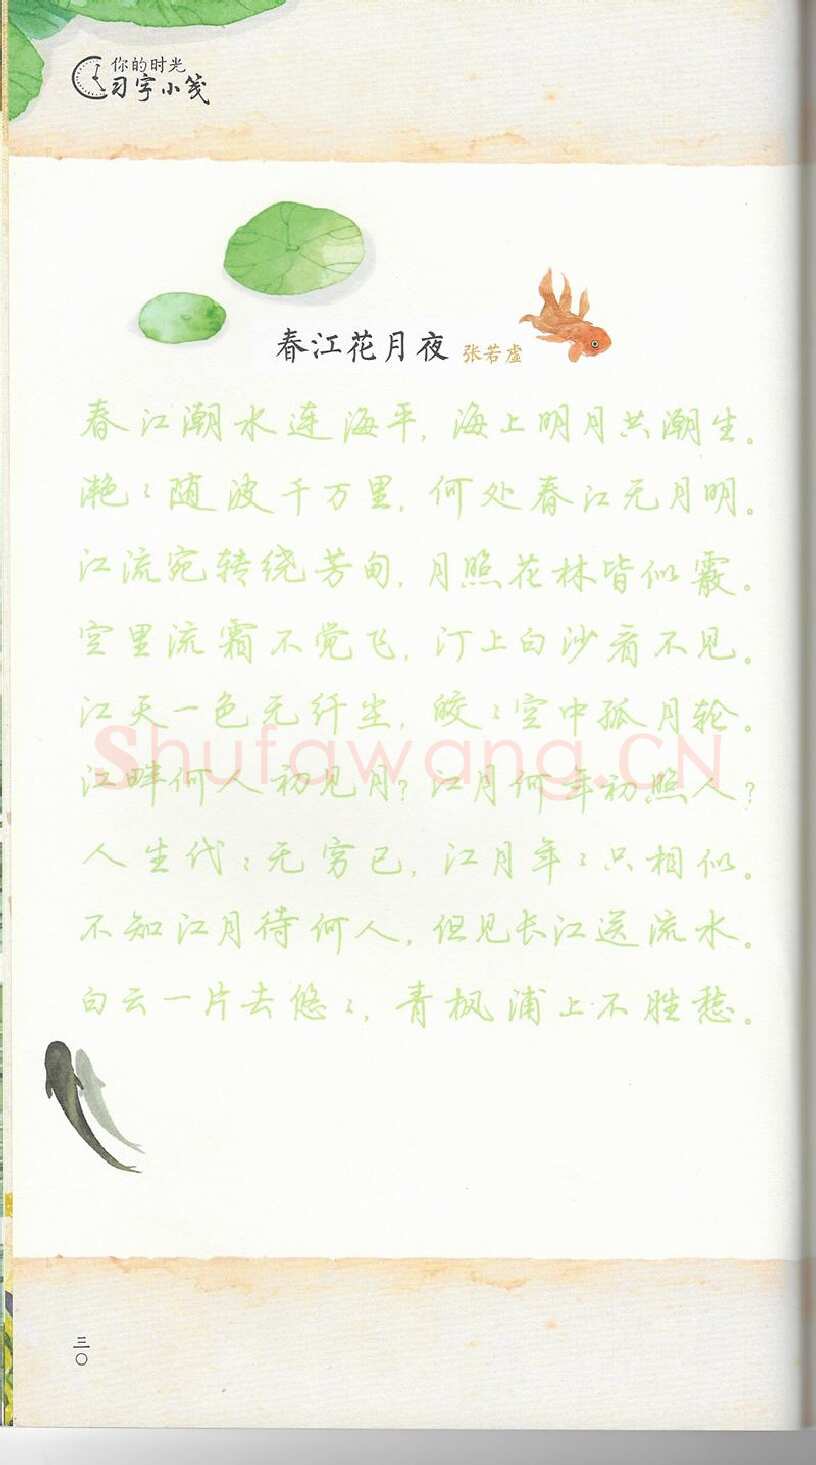 你的时光
习字小笺
春江花月夜 张若虚
春江潮水连海平，海上明月共潮生。
滟々随波千万里，何处春江无月明。
江流宛转绕芳甸，月照花林皆似霰。
空里流霜不觉飞，汀上白沙看不见。
江天一色无纤尘，皎々空中孤月轮。
江畔何人初见月？江月何年初照人？
人生代々无穷已，江月年々只相似。
不知江月待何人，但见长江送流水。
白云一片去悠々，青枫浦上不胜愁。
Shufawang.CN
三〇